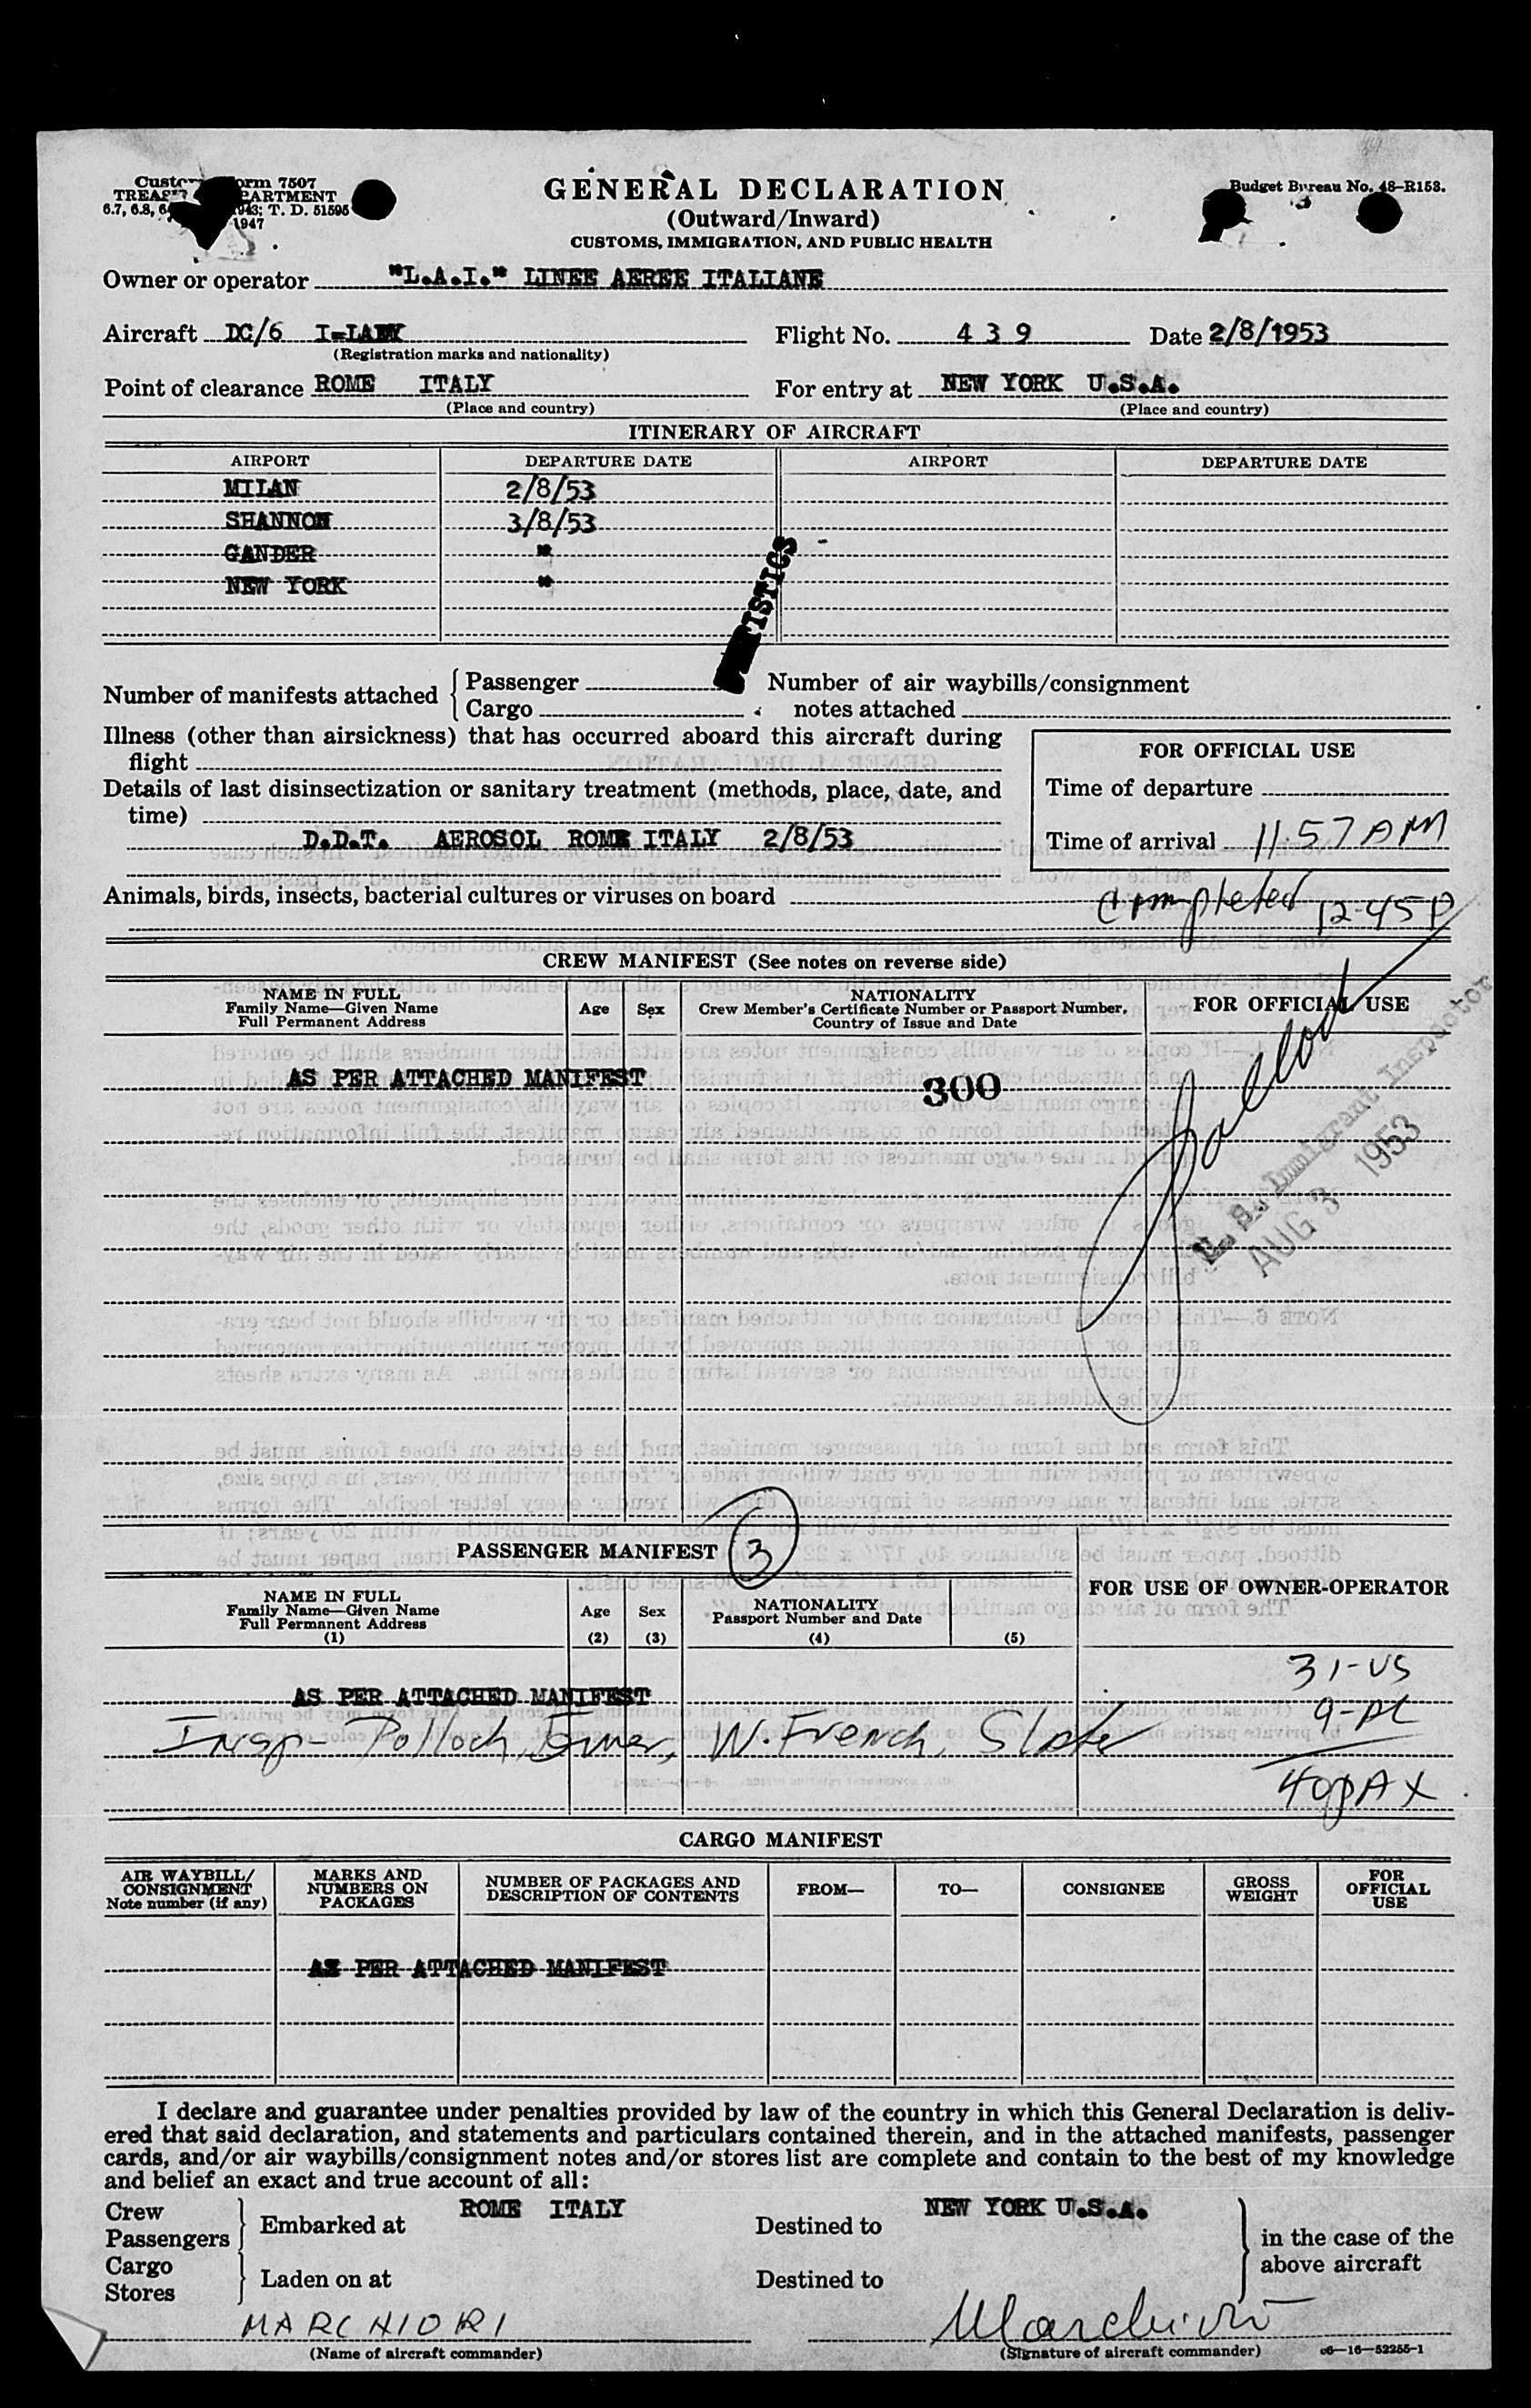 Customs Form 7507
TREASURY DEPARTMENT
1943; T. D. 51595
1947
GENERAL DECLARATION
(Outward/Inward)
CUSTOMS, IMMIGRATION, AND PUBLIC HEALTH
Budget Bureau No. 48-R153.
Owner or operator "L.A.I." LINEE AEREE ITALIANE
Aircraft DC/6 I-LADY Flight No. 4 3 9 Date 2/8/1953
(Registration marks and nationality)
Point of clearance ROME ITALY For entry at NEW YORK U.S.A.
(Place and country) (Place and country)
ITINERARY OF AIRCRAFT
AIRPORT DEPARTURE DATE AIRPORT DEPARTURE DATE
MILAN 2/8/53
SHANNON 3/8/53
GANDER "
NEW YORK "
TISTICS
Number of manifests attached Passenger Number of air waybills/consignment
Cargo notes attached
Illness (other than airsickness) that has occurred aboard this aircraft during
flight
FOR OFFICIAL USE
Details of last disinsectization or sanitary treatment (methods, place, date, and
time)
Time of departure
D.D.T. AEROSOL ROME ITALY 2/8/53
Time of arrival 11:57 AM
Animals, birds, insects, bacterial cultures or viruses on board
Completed 12-45P
CREW MANIFEST (See notes on reverse side)
NAME IN FULL
Family Name—Given Name
Full Permanent Address
Age Sex
NATIONALITY
Crew Member's Certificate Number or Passport Number,
Country of Issue and Date
FOR OFFICIAL USE
AS PER ATTACHED MANIFEST 300
U. S. Immigrant Inspector
AUG 3 1953
PASSENGER MANIFEST 3
NAME IN FULL
Family Name—Given Name
Full Permanent Address
(1)
Age
(2)
Sex
(3)
NATIONALITY
Passport Number and Date
(4) (5)
FOR USE OF OWNER-OPERATOR
31-US
AS PER ATTACHED MANIFEST
9-AL
Insp- Pollock, W. French, Slate
40 PAX
CARGO MANIFEST
AIR WAYBILL/
CONSIGNMENT
Note number (if any)
MARKS AND
NUMBERS ON
PACKAGES
NUMBER OF PACKAGES AND
DESCRIPTION OF CONTENTS
FROM—
TO—
CONSIGNEE
GROSS
WEIGHT
FOR
OFFICIAL
USE
AS PER ATTACHED MANIFEST
I declare and guarantee under penalties provided by law of the country in which this General Declaration is deliv-
ered that said declaration, and statements and particulars contained therein, and in the attached manifests, passenger
cards, and/or air waybills/consignment notes and/or stores list are complete and contain to the best of my knowledge
and belief an exact and true account of all:
Crew
Passengers
Embarked at ROME ITALY Destined to NEW YORK U.S.A.
in the case of the
above aircraft
Cargo
Stores
Laden on at Destined to
MARCHIORI Marchiori
(Name of aircraft commander) (Signature of aircraft commander) c6—16—52255-1